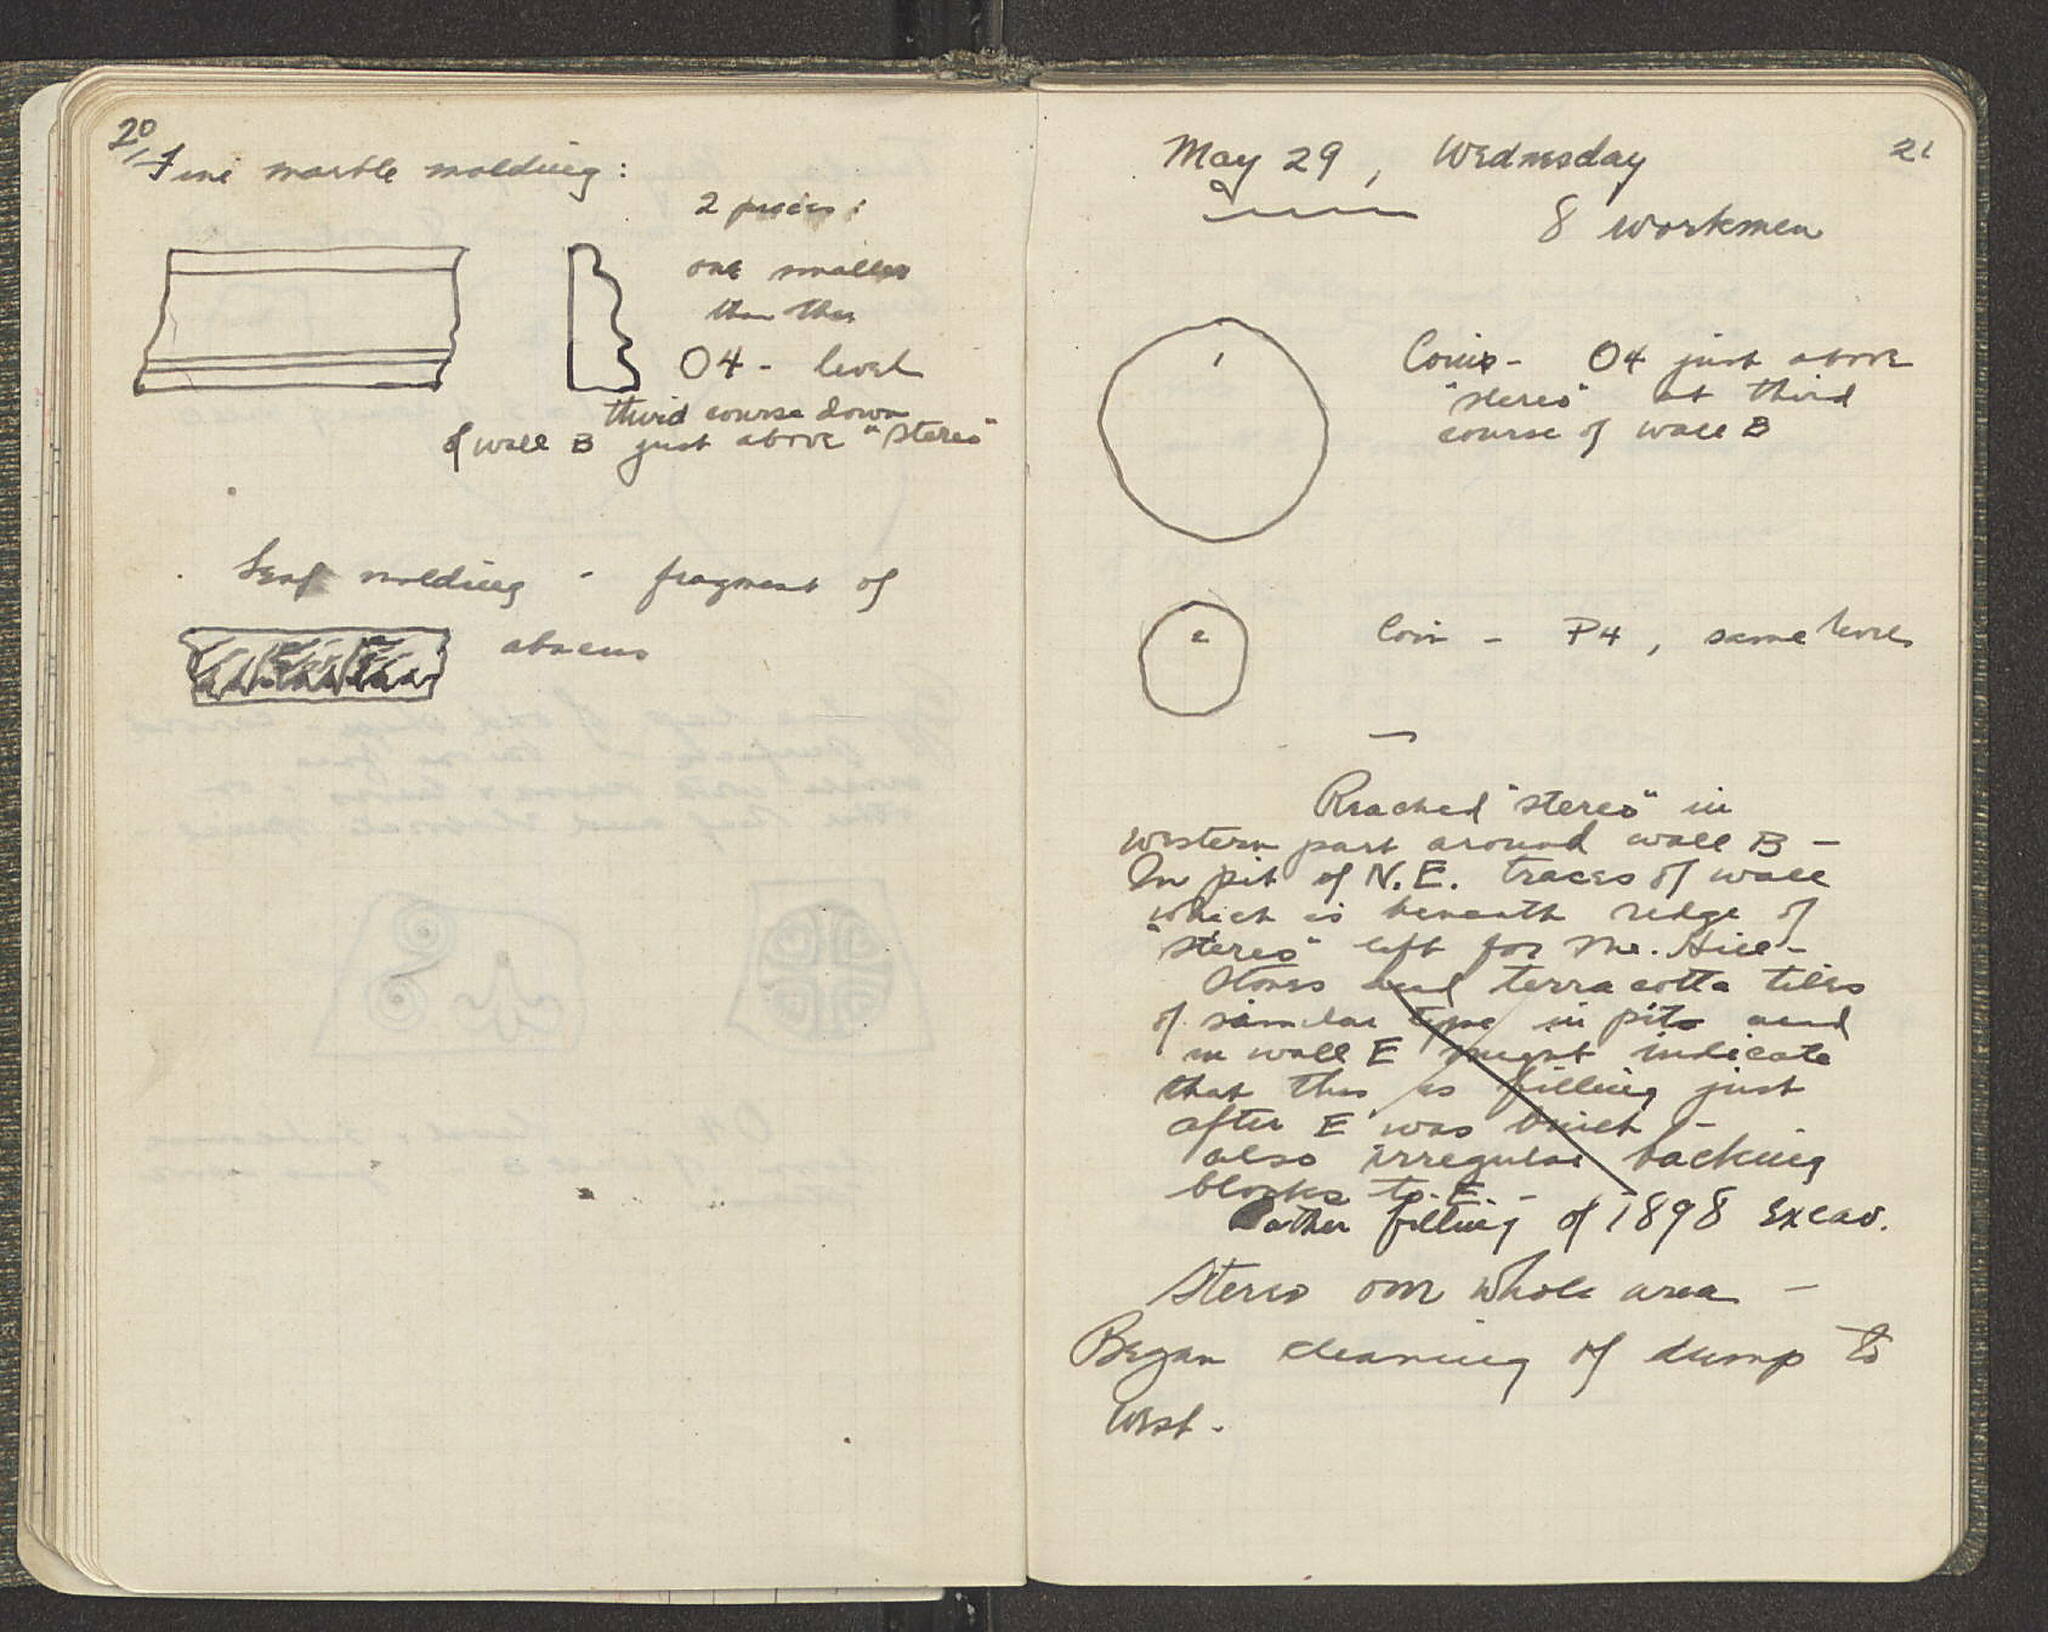 20
Fine marble molding:
2 pieces:
one smaller
than this
O4 - level
third course down
of wall B just above "stereo"
Leaf molding - fragment of
abacus
21
May 29, Wednesday
8 workmen
1
Coins - O4 just above
"stereo" at third
course of wall B
2
Coin - P4, same level
Reached "stereo" in
western part around wall B -
In pit of N.E. traces of wall
which is beneath ledge of
"stereo" left for Mr. Hill -
Stones and terracotta tiles
of similar type in pit and
in wall E might indicate
that this is filling just
after E was built -
also irregular backing
blocks to E. -
Rather filling of 1898 Excav.
Stereo over whole area -
Began cleaning of dump to
west.